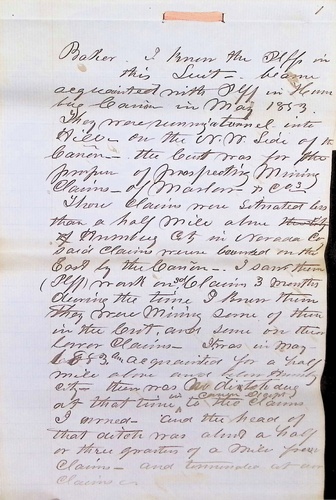 1
Baker. I know the Plffs in
this Suit - became
acquainted with Plff in Hum
bug Cañon in May 1853
They were running a tunnel into
Hill - on the N.W. Side of the
Cañon - the Cut was for the
purpose of prospecting Mining
Claims - of Marlow & Co's
Those Claims were situated less
than a half Mile above
Humbug City in Nevada Co
Said Claims were bounded on the
East by the Cañon - I saw them
(Plff) work on sd Claims 3 months
during the time I knew them
they were Mining some of them
in the Cut, and some on their
lower Claims - It was in May
1853 I'm acquainted for a half
mile above and below Humbug
city - there was no ditch dug
at that time in Canon except to the Claims
I owned - and the head of
that ditch was about a half
or three quarters of a Mile from
Claims - and terminated at our
Claims